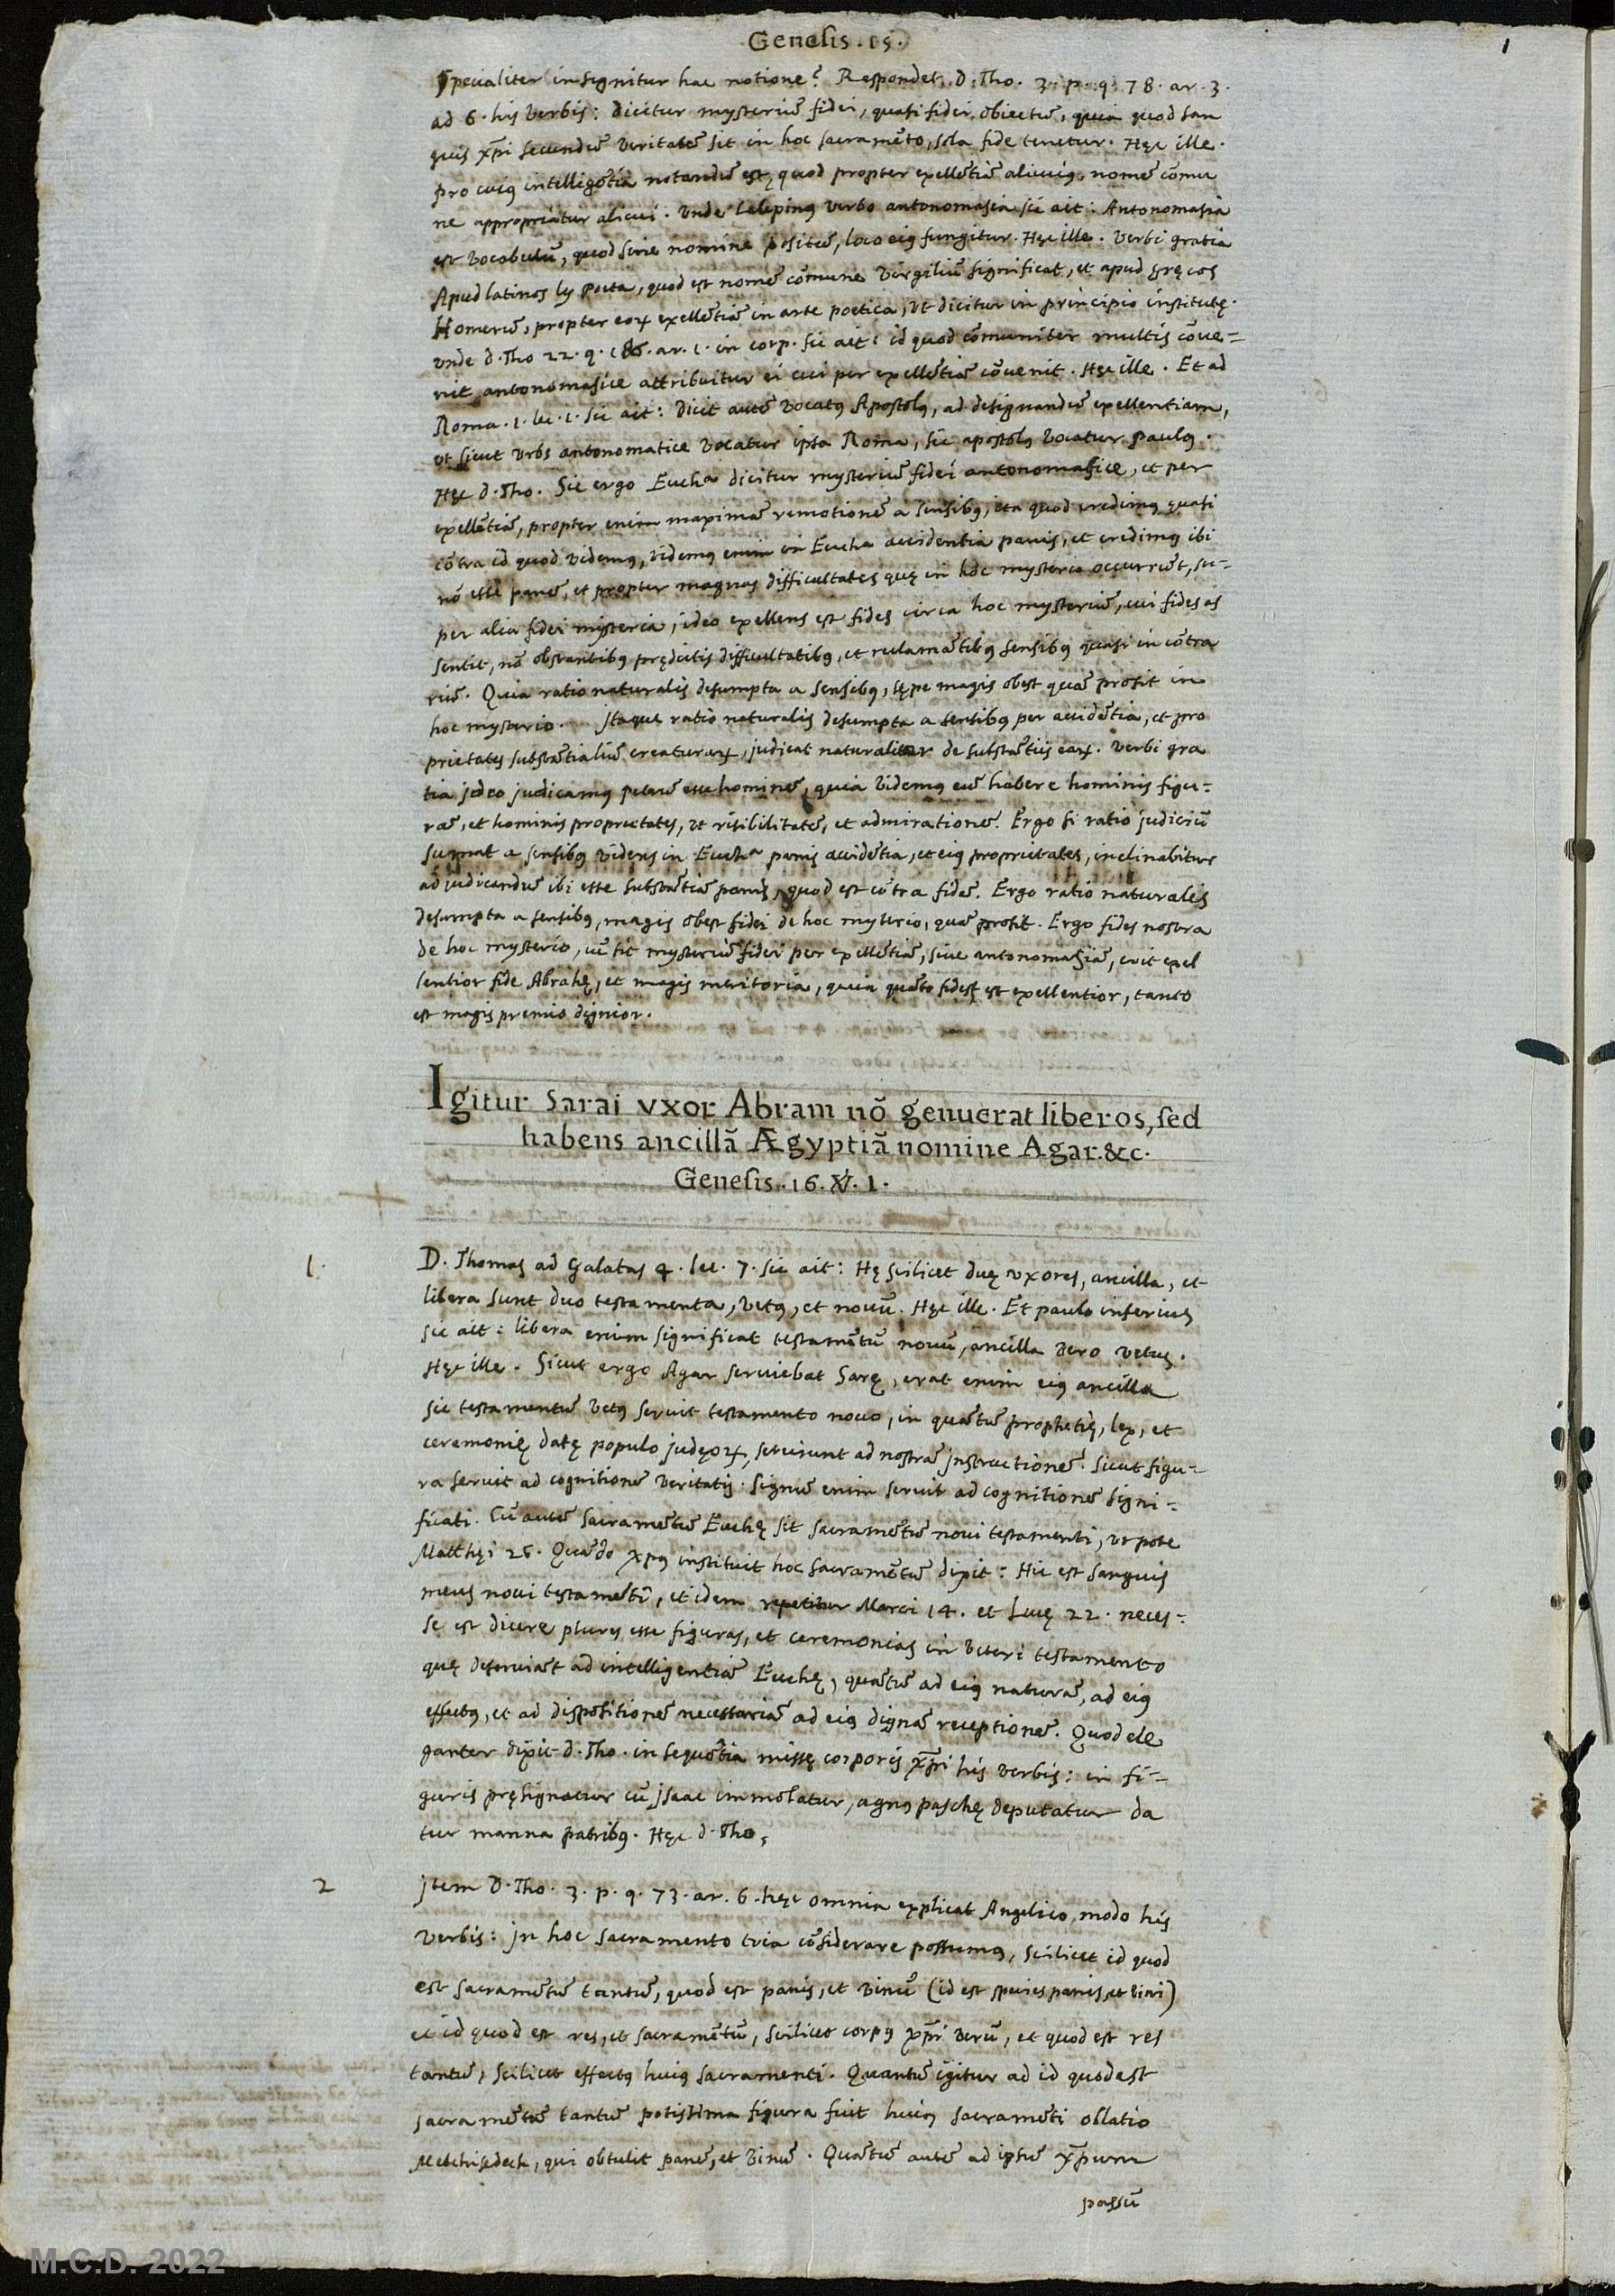 Genesis. 15.
1
specialiter insignitur hac notione? Respondet. D. Tho. 3. p. q. 78. ar. 3.
ad 6. his verbis: dicitur mysteriũ fidei, quasi fidei obiectũ, quia quod san
guis xp̃i secundũ veritatẽ sit in hoc sacramẽto, sola fide tenetur. Hęc ille.
pro cuiꝰ intelligẽtia notandũ est, quod propter exellẽtiã alicuiꝰ, nomẽ cõmu
ne appropriatur alicui. Vnde Calepinꝰ verbo antonomasia sic ait: Antonomasia
est vocabulũ, quod sine nomine positũ, loco eiꝰ fungitur. Hęc ille. Verbi gratia
Apud latinos ly poeta, quod est nomẽ cõmune Virgiliũ significat, et apud gręcos
Homerũ, propter eoꝝ exellẽtiã in arte poetica, vt dicitur in principio institutę.
vnde d. Tho 22. q. 186. ar. 1. in corp. sic ait: id quod cõmuniter multis cõue-
nit antonomasice attribuitur ei cui per exellẽtiã cõuenit. Hęc ille. Et ad
Roma. 1. lec. 1. sic ait: Dicit autẽ vocatꝰ Apostolꝰ, ad designandũ exellentiam,
vt sicut vrbs antonomatice vocatur ipsa Roma, sic apostolꝰ vocatur paulꝰ.
Hęc d. Tho. Sic ergo Eucha dicitur mysteriũ fidei antonomasice, et per
exellẽtiã, propter enim maximã remotionẽ a sensibꝰ, ita quod credimꝰ quasi
cõtra id quod videmꝰ, videmꝰ enim in Eucha accidentia panis, et credimꝰ ibi
nõ esse panẽ, et propter magnas difficultates quę in hoc mysterio occurrũt, su-
per alia fidei mysteria, ideo exellens est fides circa hoc mysteriũ, cui fides as
sentit, nõ obstantibꝰ prędictis difficultatibꝰ, et reclamãtibꝰ sensibꝰ quasi in cõtra
riũ. Quia ratio naturalis desumpta a sensibꝰ, sępe magis obest quã prosit in
hoc mysterio. Itaque ratio naturalis desumpta a sensibꝰ per accidẽtia, et pro
prietates substãtialiũ creaturaꝝ, judicat naturaliter de substãtiis eaꝝ. Verbi gra
tia jdeo judicamꝰ petrũ esse hominẽ, quia videmꝰ eũ habere hominis figu-
rã, et hominis proprietates, vt risibilitatẽ, et admirationẽ. Ergo si ratio judiciũ
sumat a sensibꝰ videns in Eucha panis accidẽtia, et eiꝰ proprietates, inclinabitur
ad judicandũ ibi esse substãtiã panis, quod est cõtra fidẽ. Ergo ratio naturalis
desumpta a sensibꝰ, magis obest fidei de hoc mysterio, quã prosit. Ergo fides nostra
de hoc mysterio, cũ sit mysteriũ fidei per exellẽtiã, siue antonomasiã, erit exel
lentior fide Abrahę, et magis meritoria, quia quãto fides est exellentior, tanto
est magis premio dignior.
Igitur Sarai vxor Abram nõ genuerat liberos, sed
habens ancillã Ægyptiã nomine Agar. &c.
Genesis. 16. ℣. 1.
1.
D. Thomas ad Galatas 4. lec. 7. sic ait: Hę scilicet duę vxores, ancilla, et
libera sunt duo testamenta, vetꝰ, et nouũ. Hęc ille. Et paulo inferius
sic ait: libera enim significat testamẽtũ nouũ, ancilla vero vetus.
Hęc ille. Sicut ergo Agar seruiebat Sarę, erat enim eiꝰ ancilla
sic testamentũ vetꝰ seruit testamento nouo, in quãtũ prophetię, lex, et
ceremonię datę populo judęoꝝ, seruiunt ad nostrã jnstructionẽ. sicut figu-
ra seruit ad cognitionẽ veritatis: signũ enim seruit ad cognitionẽ signi-
ficati. Cũ autẽ sacramẽtũ Euchę sit sacramẽtũ noui testamenti, vt pote
Matthęi 26. Quãdo xpꝰ instituit hoc sacramẽtũ dixit: Hic est sanguis
meus noui testamẽti, et idem repetitur Marci 14. et Lucę 22. neces-
se est dicere plures esse figuras, et ceremonias in veteri testamento
quę deseruiãt ad intelligentiã Euchę, quãtũ ad eiꝰ naturã, ad eiꝰ
effectꝰ, et ad dispositionẽ necessariã ad eiꝰ dignã receptionẽ. Quod ele
ganter dixit d. Tho. in sequẽtia missę corporis xp̃i his verbis: in fi-
guris pręsignatur cũ jsaac immolatur, agnꝰ paschę deputatur da
tur manna patribꝰ. Hęc d. Tho.
2
jtem D. Tho. 3. p. q. 73. ar. 6. hęc omnia explicat Angelico modo his
verbis: jn hoc sacramento tria cõsiderare possumꝰ, scilicet id quod
est sacramẽtũ tantũ, quod est panis, et vinũ (id est species panis, et vini)
et id quod est res, et sacramẽtũ, scilicet corpꝰ xp̃i verũ, et quod est res
tantũ, scilicet effectꝰ huiꝰ sacramenti. Quantũ igitur ad id quod est
sacramẽtũ tantũ potissima figura fuit huiꝰ sacramẽti ollatio
Melchisedech, qui obtulit panẽ, et vinũ. Quãtũ autẽ ad ipsũ xp̃um
passũ
M.C.D. 2022